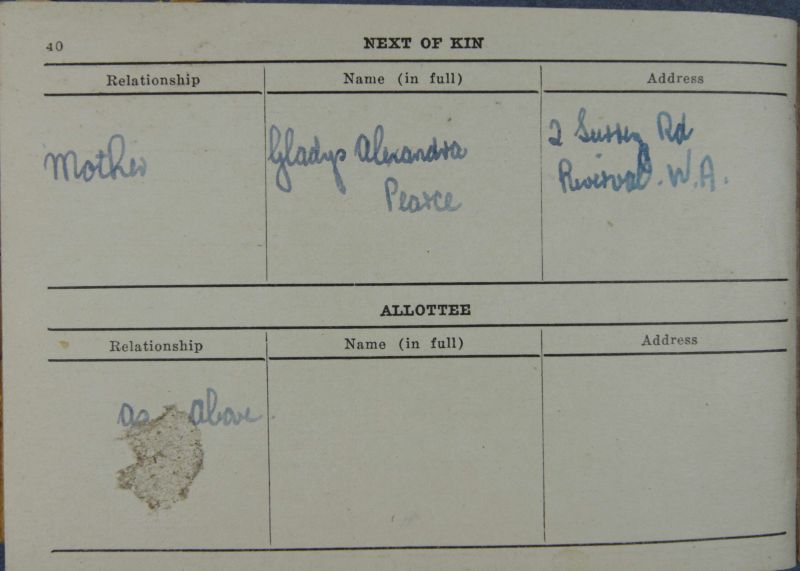 40
NEXT OF KIN
Relationship Name (in full) Address
Mother Gladys Alexandra 2 Surrey Rd
Pearce Rivervale. W.A.
ALLOTTEE
Relationship Name (in full) Address
as above